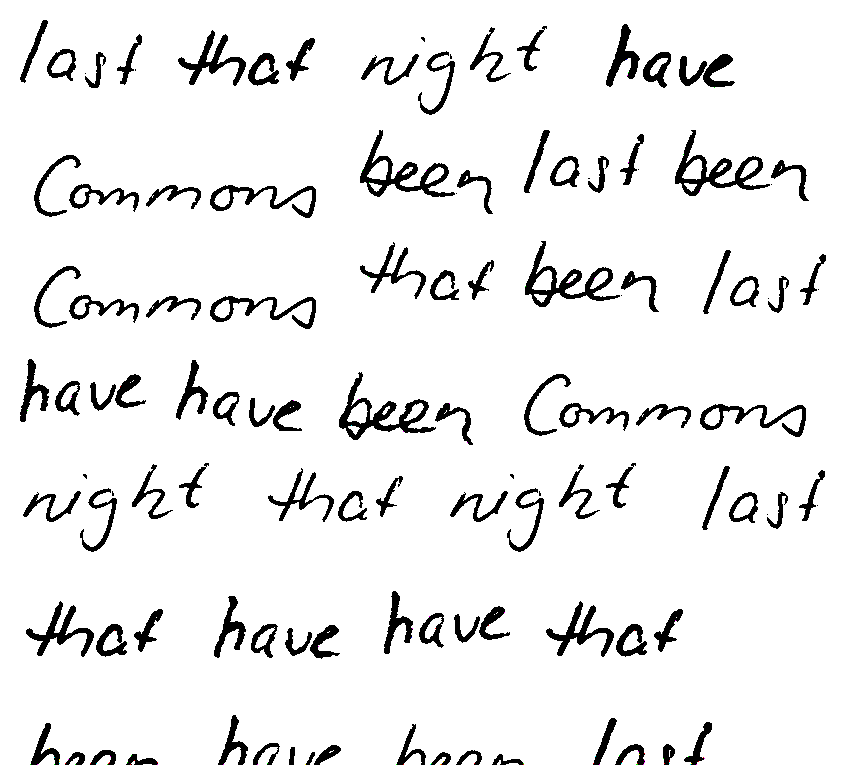 last that night have
Commons been last been
Commons that been last
have have been Commons
night that night last
that have have that
been have been last